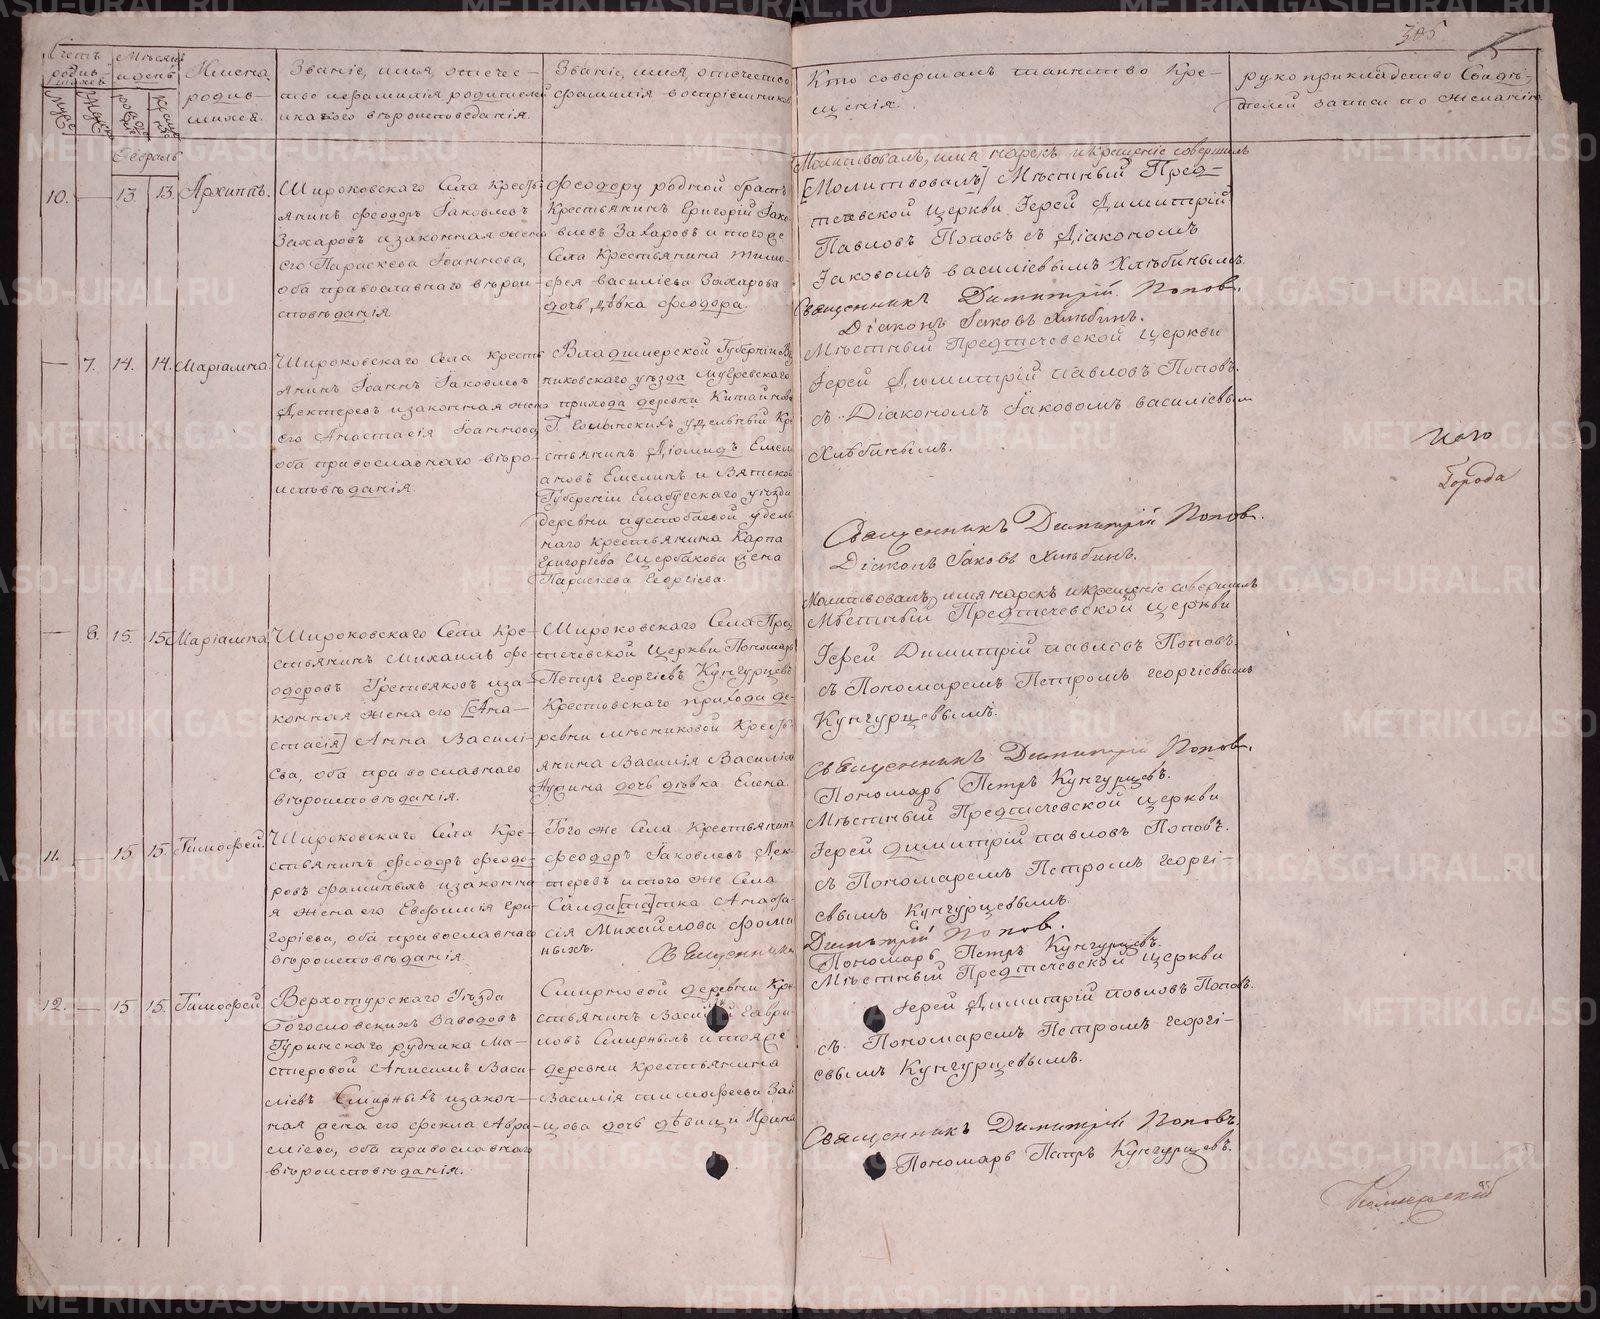 305
Счетъ родив- шихся
Мѣсяцъ и день
Имена родив- шихся.
Званіе, имя, отечес- тво и фамилія родителей и какого вѣроисповѣданія.
Званіе, имя, отечество и фамилія воспріемников
Кто совершалъ таинство Кре- щенія.
рукоприкладство Свидѣ- телей записи по желанію
Февраль
10. — 13. 13. Архиппъ.
Широковскаго Села Кресть-
янинъ Феодоръ Іаковлевъ
Захаровъ и законная жена
его Параскева Іоаннова,
оба православнаго вѣрои-
сповѣданія.
Феодору родной братъ
Крестьянинъ Григорій Іако-
влевъ Захаровъ и того же
Села Крестьянина Тимо-
фея Василіева Захарова
дочь, дѣвка Феодора.
Молитвовалъ, имя нарекъ и крещеніе совершилъ
[Молитвовалъ] Мѣстный Пред-
течевской церкви Іерей Димитрій
Павловъ Поповъ съ Діакономъ
Іаковомъ Василіевымъ Хлѣбинымъ.
Священникъ Димитрій Поповъ.
Діаконъ Іаковъ Хлѣбинъ.
— 7. 14. 14. Маріамна.
Широковскаго Села кресть
янинъ Іоаннъ Іаковлевъ
Дектеревъ и законная жена
его Анастасія Іоаннова,
оба православнаго вѣро-
исповѣданія.
Владимерской Губерніи Вя
никовскаго уѣзда
прихода деревни
удельный Кре
стьянинъ Діомидъ Емели
ановъ Емелинъ и Вятской
Губерніи Елабугскаго уѣзда
деревни удель
наго крестьянина Карпа
Григоріева Щербакова жена
Параскева Георгіева.
Мѣстный Предтечевской церкви
Іерей Димитрій Павловъ Поповъ.
съ Діакономъ Іаковомъ Василіевымъ
Хлѣбинымъ.
Священникъ Димитрій Поповъ.
Діаконъ Іаковъ Хлѣбинъ.
Города
— 8. 15. 15. Маріамна.
Широковскаго Села Кре-
стьянинъ Михаилъ Фе-
одоровъ Третьяковъ и за-
конная жена его [Ана-
стасія] Анна Василі-
ева, оба православнаго
вѣроисповѣданія.
Широковскаго Села Пред
течевской Церкви Пономарь
Петръ Георгіевъ Кунгурцевъ
Крестовскаго прихода де-
ревни Мѣсниковой Кресть-
янина Василія Василіева
дочь дѣвка Елена.
Молитвовалъ, имя нарекъ и крещеніе совершилъ
Мѣстный Предтечевской церкви
Іерей Димитрій Павловъ Поповъ.
съ Пономаремъ Петромъ Георгіевымъ
Кунгурцевымъ.
Священникъ Димитрій Поповъ.
Пономарь Петръ Кунгурцевъ.
11. — 15 15. Тимофей.
Широковскаго Села Кре-
стьянинъ Феодоръ Феодо-
ровъ Фаминыхъ и законна
я жена его Евфимія Гри-
горіева, оба православнаго
вѣроисповѣданія.
Того же Села Крестьянинъ
Феодоръ Іаковлевъ Дек-
теревъ и того же Села
Салда[та]тка Анафа-
сія Михайлова Фоми
ныхъ. Священникъ
Мѣстный Предтечевской церкви
Іерей Димитрій Павловъ Поповъ.
съ Пономаремъ Петромъ Георгі-
евымъ Кунгурцевымъ.
Димитрій Поповъ.
Пономарь Петръ Кунгурцевъ.
12. — 15 15. Тимофей.
Верхотурскаго Уѣзда
Богословскихъ Заводовъ
Турьинскаго рудника Ма-
стеровой Анисимъ Васи-
ліевъ Смирныхъ и закон-
ная жена его Фекла Авра-
міева, оба православнаго
вѣроисповѣданія.
Смирновой деревни Кре
стьянинъ Василій Гаври-
ловъ Смирныхъ и тояже
деревни крестьянина
Василія Тимофеева Зай
цова дочь дѣвица Ирина
Мѣстный Предтечевской церкви
Іерей Димитрій Павловъ Поповъ
съ Пономаремъ Петромъ Георгі-
евымъ Кунгурцевымъ.
Священникъ Димитрій Поповъ.
Пономарь Петръ Кунгурцевъ.
METRIKI.GASO-URAL.RU